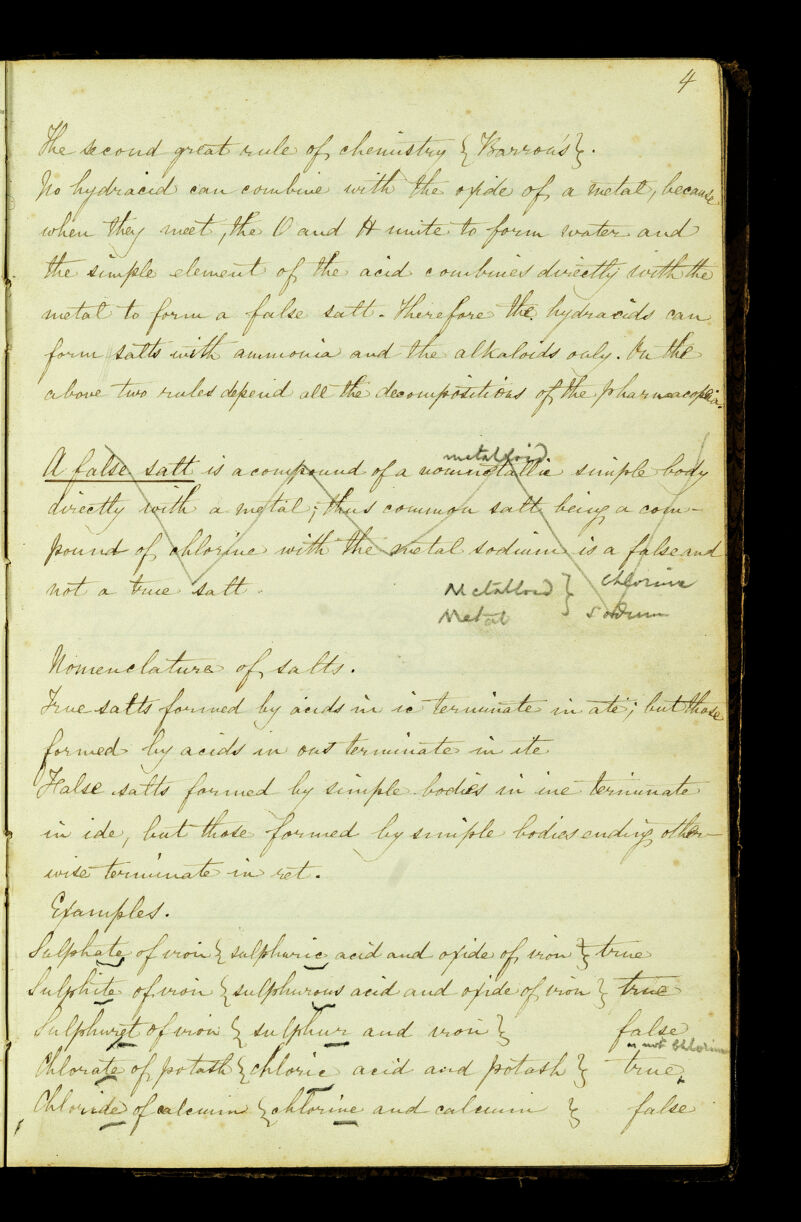 4
The second great rule of chemistry { Barron's }.
No hydracid can combine with the oxide of a metal, because
when they meet, the O and H unite to form water and
the simple element of the acid combines directly with the
metal to form a false salt. Therefore the hydracids can
form salts with ammonia and the alkaloids only. On the
above two rules depend all the decompositions of the pharmacopeia.
metalloid
A false salt is a compound of a nonmetallic simple body
directly with a metal; thus common salt being a com-
pound of chlorine with the metal sodium is a false and
not a true salt.
Metalloid } chlorine
Metal } sodium
Nomenclature of salts.
True salts formed by acids in ic terminate in ate; but those
formed by acids in ous terminate in ite
False salts formed by simple bodies in ine terminate
in ide, but those formed by simple bodies ending other-
wise terminate in ret.
Examples.
Sulphate of iron { sulphuric acid and oxide of iron } true
Sulphite of iron { sulphurous acid and oxide of iron } true
Sulphuret of iron { sulphur and iron } false
not chlorine
Chlorate of potash { chloric acid and potash } true,
Chloride of calcium { chlorine and calcium } false